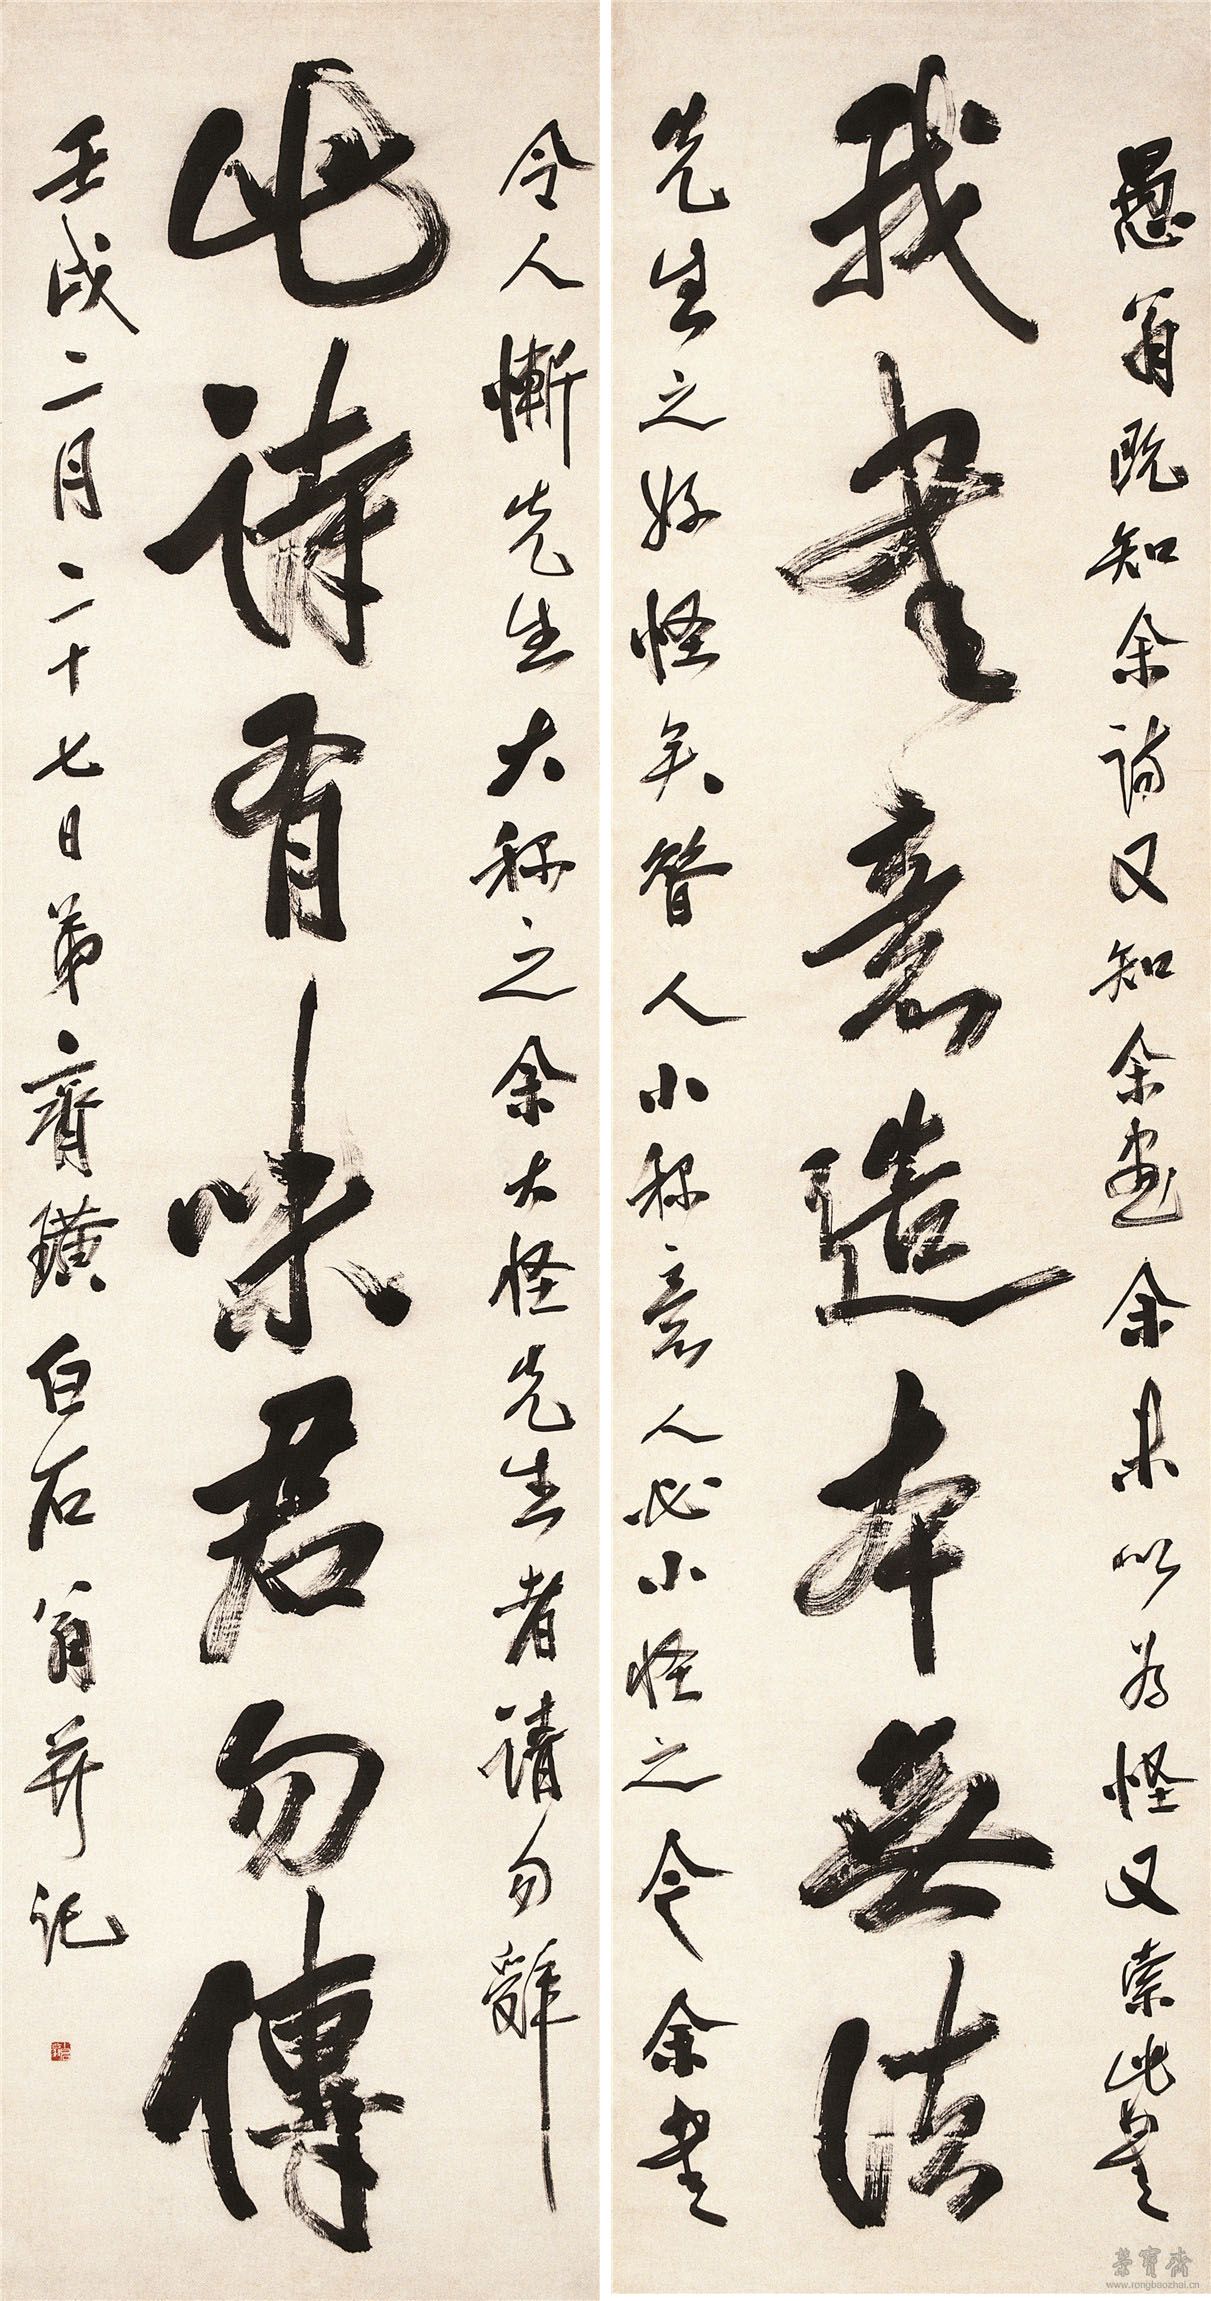 愚翁既知余詩又知余畫余未以為怪又索此是
我書意造本無法
先生之好怪矣瞽人小称意人必小怪之今余書
令人慚先生大称之余大怪先生者請勿辭
此詩有味君勿傳
壬戌二月二十七日弟齊璜白石翁并記
榮寶齋
www.rongbaozhai.cn